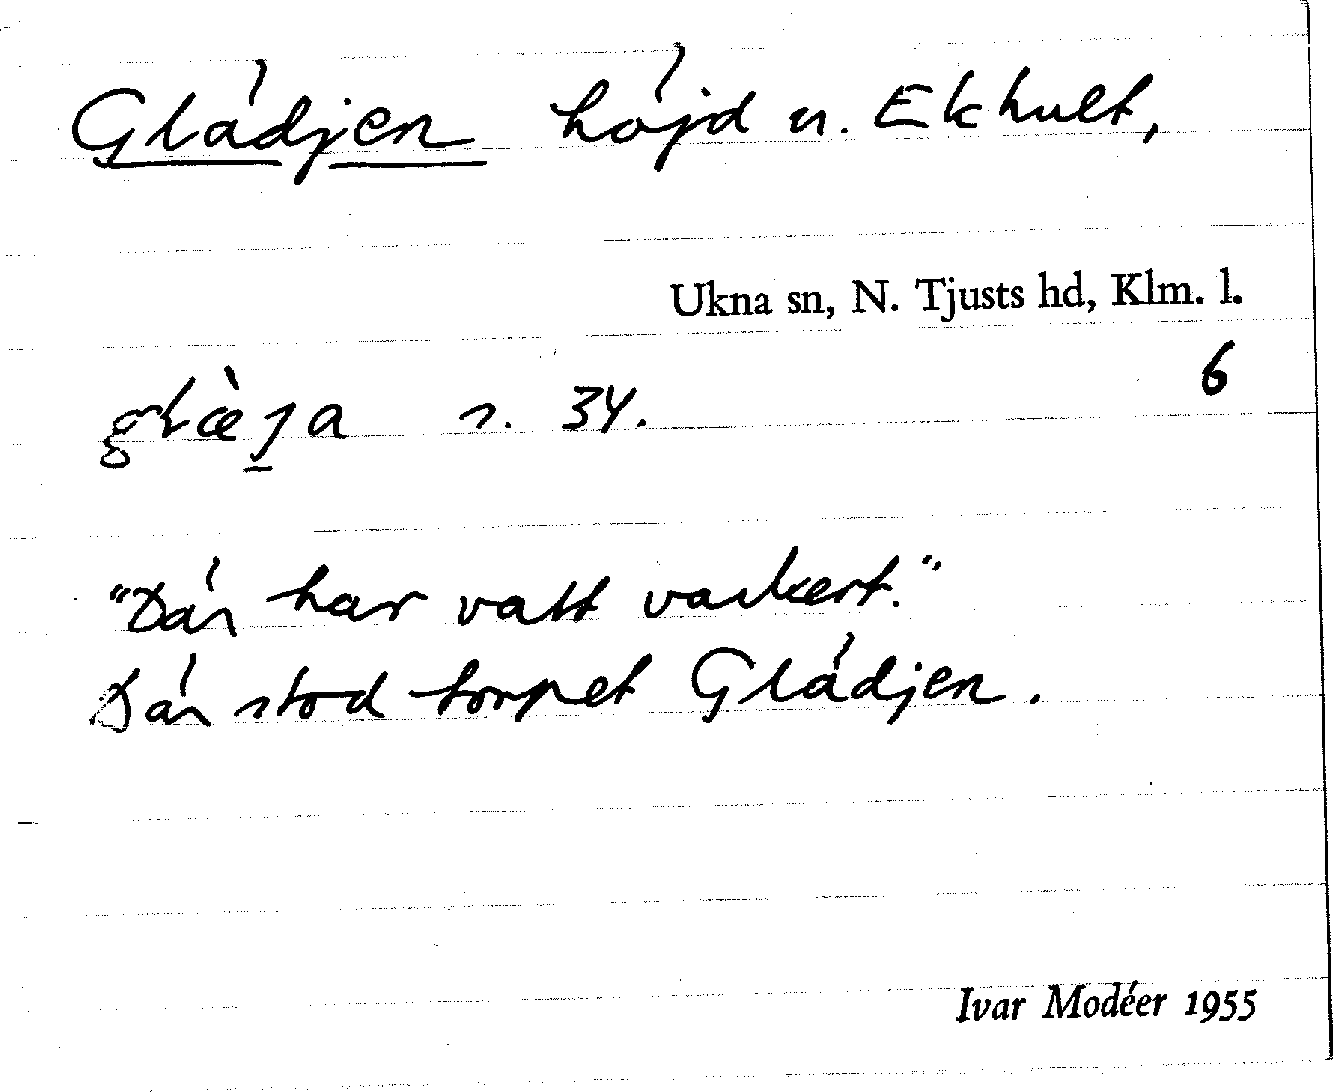 Glädjen höjd n. Ekhult,
Ukna sn, N. Tjusts hd, Klm. l.
6
s. 34.
"Där har vatt vackert."
Där stod torpet Glädjen.
Ivar Modéer 1955